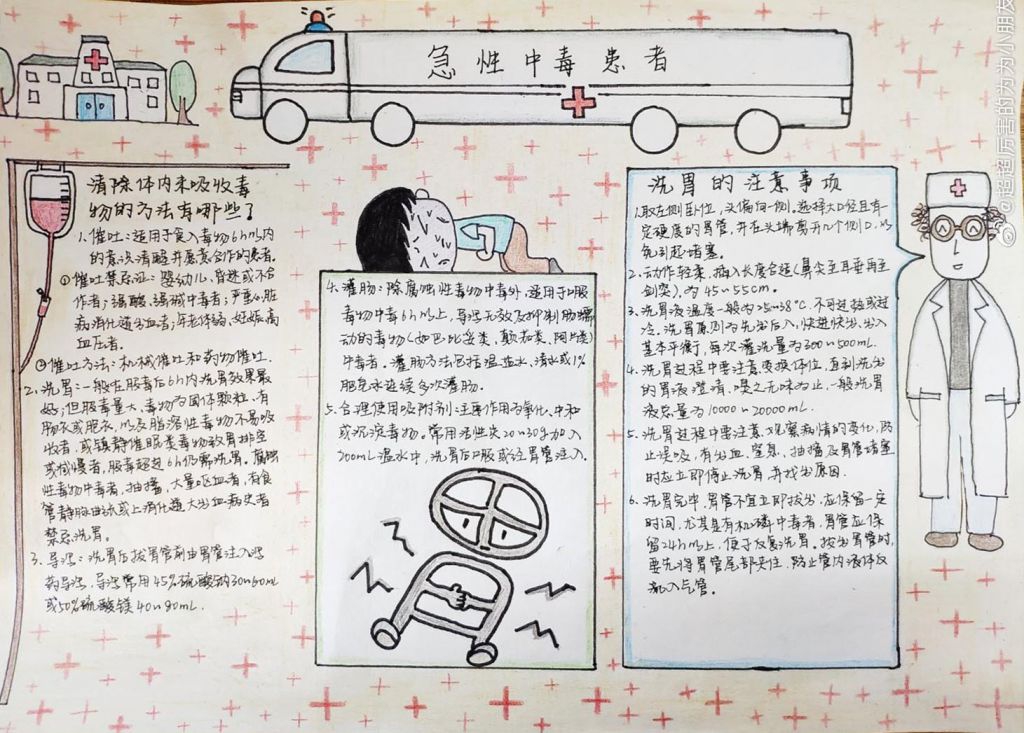 急性中毒患者
清除体内未吸收毒
物的方法有哪些？
1.催吐：适用于食入毒物6h内
的意识清醒并愿意合作的患者.
①催吐禁忌证：婴幼儿、昏迷或不合
作者；强酸、强碱中毒者；严重心脏
病消化道出血者；年老体弱、妊娠高
血压者.
②催吐方法：机械催吐和药物催吐.
2.洗胃：一般在服毒后6h内洗胃效果最
好；但服毒量大、毒物为固体颗粒、有
肠衣或胶衣，以及脂溶性毒物不易吸
收者，或镇静催眠类毒物致胃排空
或减慢者，服毒超过6h仍需洗胃。腐蚀
性毒物中毒者，抽搐、大量呕血者，有食
管静脉曲张或上消化道大出血病史者
禁忌洗胃。
3.导泻：洗胃后拔胃管前由胃管注入泻
药导泻，导泻常用45%硫酸钠30~60mL
或50%硫酸镁40~80mL.
4.灌肠：除腐蚀性毒物中毒外，适用于口服
毒物中毒6h以上，导泻无效及抑制肠蠕
动的毒物(如巴比妥类、颠茄类、阿片类)
中毒者。灌肠方法包括温盐水、清水或1%
肥皂水连续多次灌肠。
5.合理使用吸附剂：主要作用为氧化、中和
或沉淀毒物。常用活性炭20~30g加入
200mL温水中，洗胃后口服或经胃管注入.
洗胃的注意事项
1.取左侧卧位，头偏向一侧。选择大口径且有一
定硬度的胃管，并在头端剪开几个侧口，以
免引起堵塞。
2.动作轻柔，插入长度合适(鼻尖至耳垂再至
剑突)，为45~55cm.
3.洗胃液温度一般为25~38℃，不可过热或过
冷。洗胃原则为先出后入，快进快出、出入
基本平衡，每次灌洗量为300~500mL.
4.洗胃过程中要注意变换体位，直到洗出
的胃液澄清、嗅之无味为止，一般洗胃
液总量为10000~20000mL.
5.洗胃过程中要注意观察病情的变化，防
止误吸，有出血、窒息、抽搐及胃管堵塞
时应立即停止洗胃，并找出原因.
6.洗胃完毕，胃管不宜立即拔出，应保留一定
时间，尤其是有机磷中毒者，胃管应保
留24h以上，便于反复洗胃。拔出胃管时，
要先将胃管尾部夹住，防止管内液体反
流入气管。
@超超厉害的为为小朋友